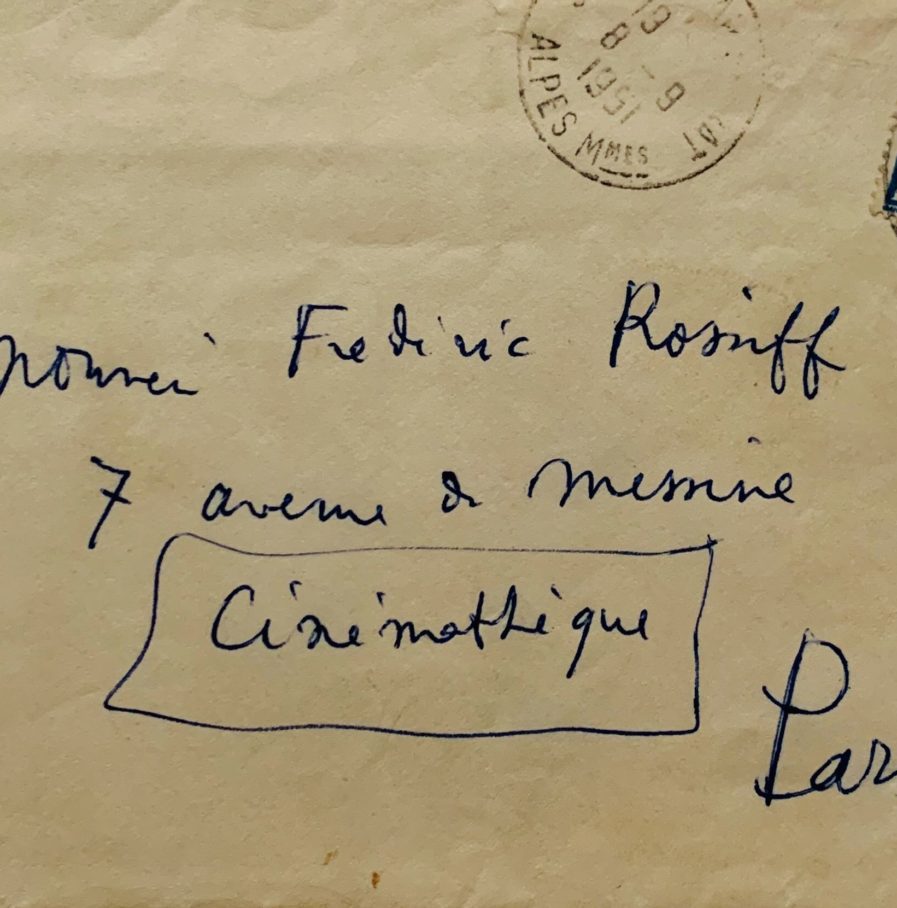 19
8 - 9
1951
ALPES MMES
Frédéric Rossiff
7 avenue de Messine
Cinémathèque
Par